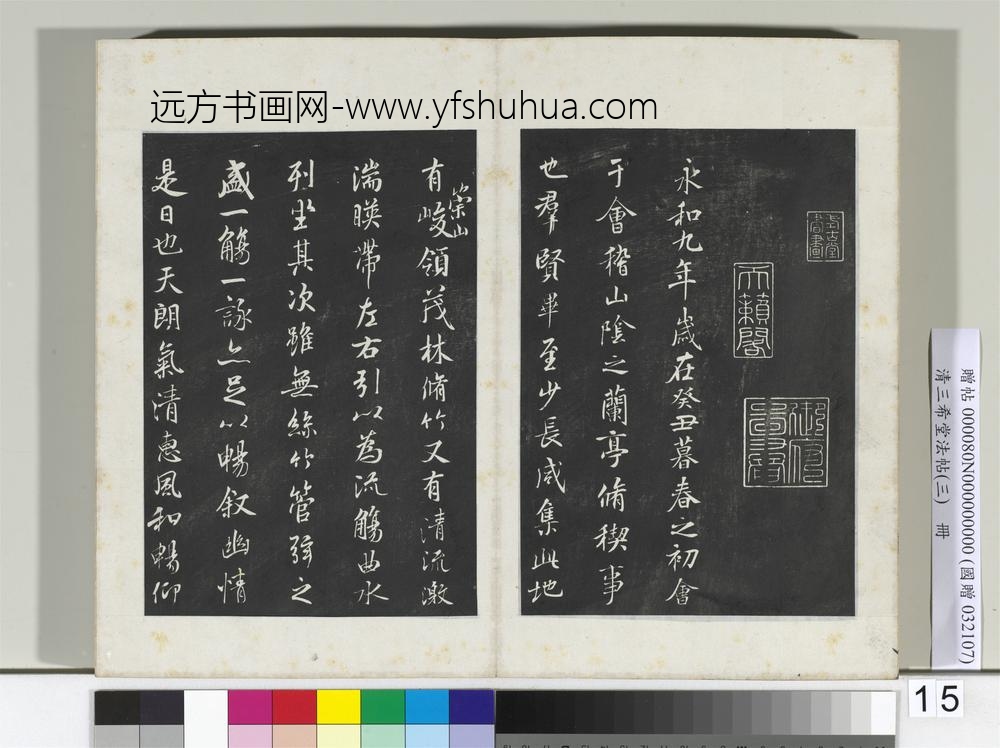 远方书画网-www.yfshuhua.com
永和九年歲在癸丑暮春之初會
于會稽山陰之蘭亭脩稧事
也羣賢畢至少長咸集此地
有崇山峻領茂林脩竹又有清流激
湍暎帶左右引以為流觴曲水
列坐其次雖無絲竹管弦之
盛一觴一詠亦足以暢叙幽情
是日也天朗氣清惠風和暢仰
天籟閣
贈帖 000080N000000000 (國贈 032107)
清三希堂法帖(三) 冊
15